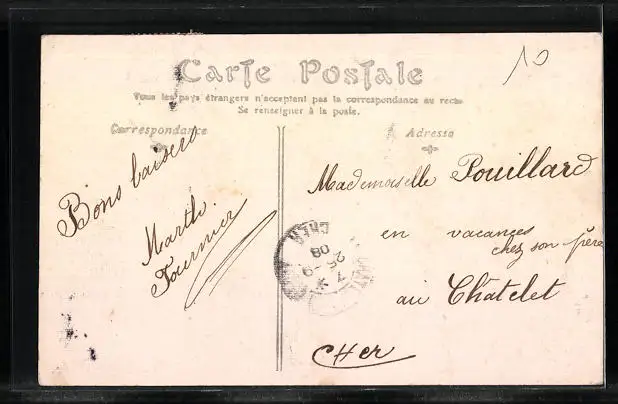 10
Carte Postale
Tous les pays étrangers n'acceptent pas la correspondance au recto
Se renseigner à la poste.
Correspondance
Adresse
Bons baisers
Marthe
Fournier
Mademoiselle Pouillard
en vacances
chez son père
au Châtelet
Cher
CHER
25 -9
08